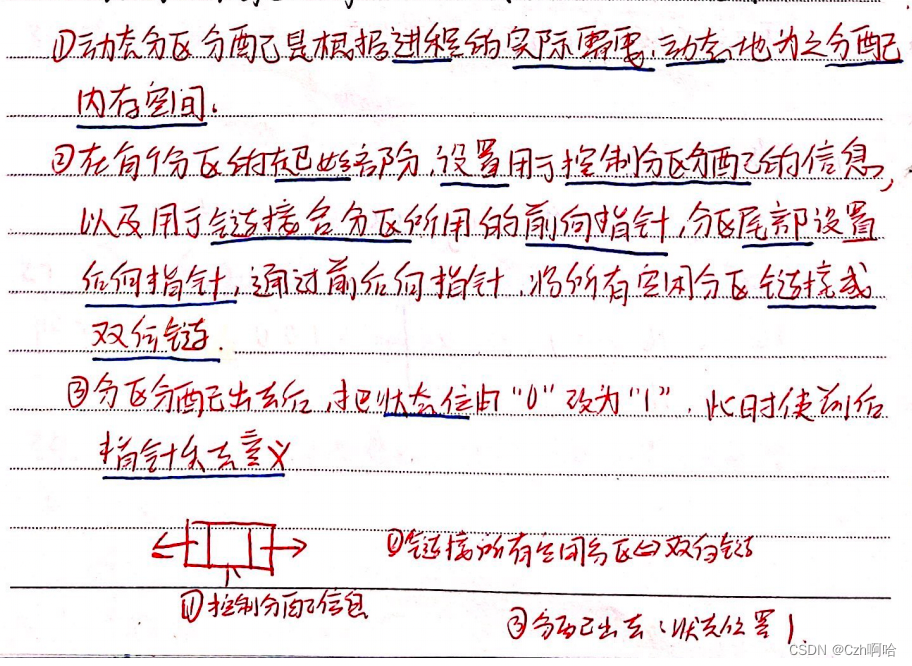 ①动态分区分配是根据进程的实际需要,动态地为之分配
内存空间.
②在每个分区的起始部分,设置用于控制分区分配的信息,
以及用于链接各分区所用的前向指针,分区尾部设置
后向指针,通过前后向指针,将所有空闲分区链接成
双向链.
③分区分配出去后,把状态位由"0"改为"1".此时使前后
指针失去意义
②链接所有空闲分区⇒双向链
①控制分配信息
③分配出去(状态位置1).
CSDN @Czh啊哈